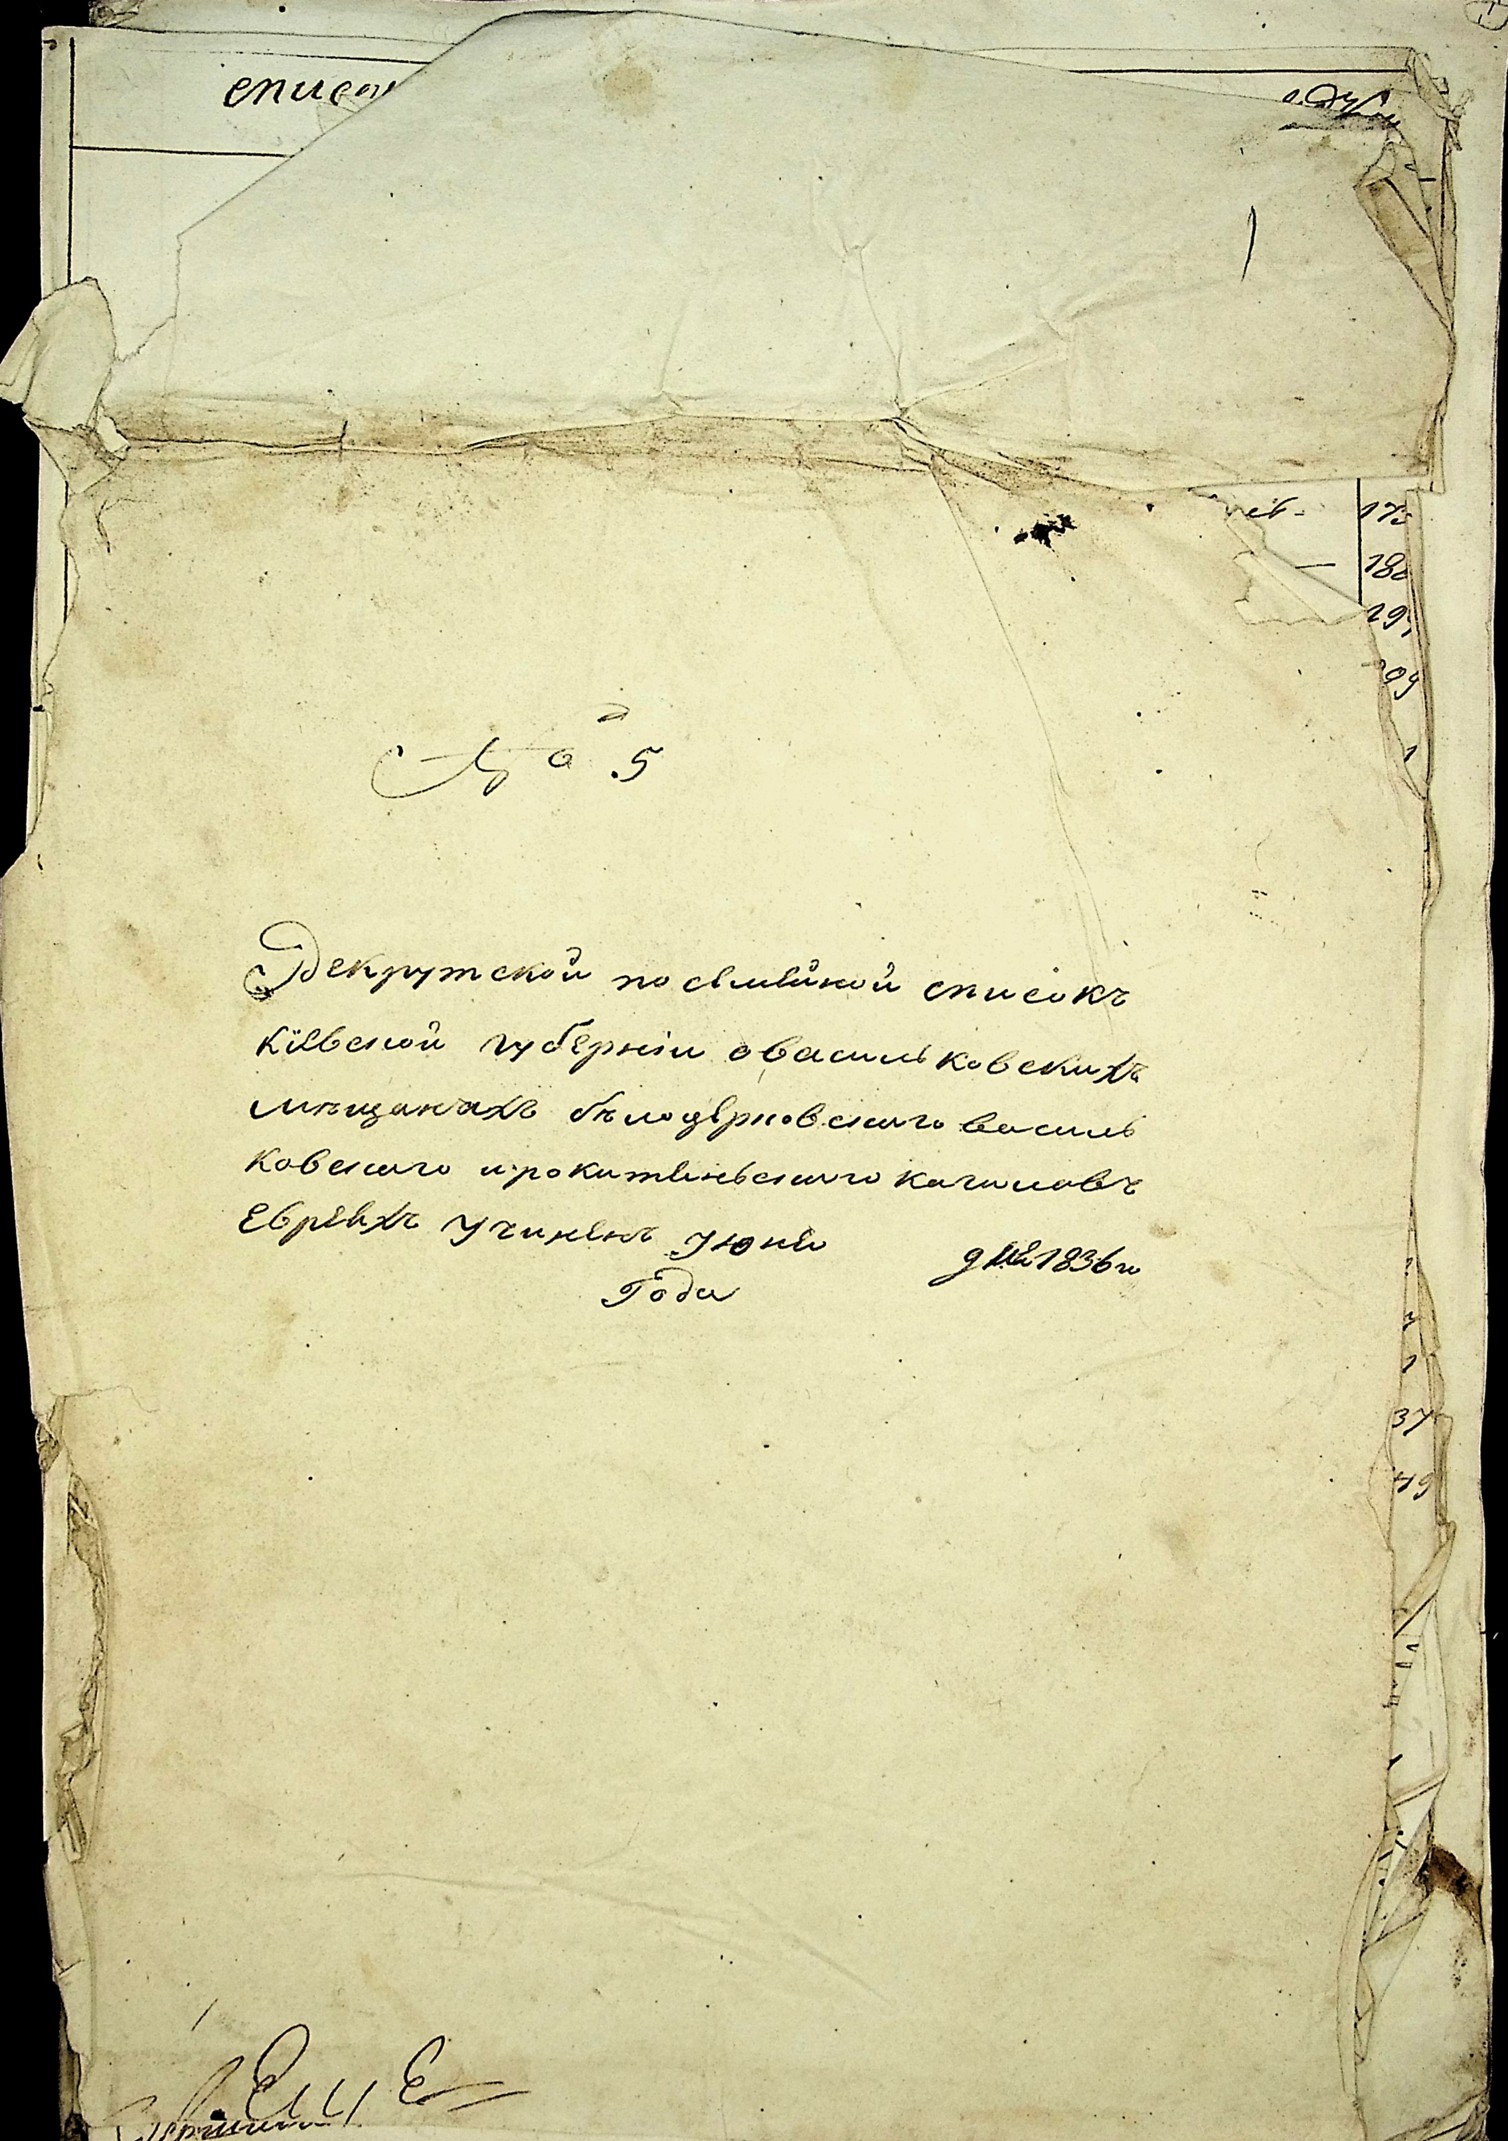 списо
№ 5
Рекрутской посемейной списокъ
Кіевской губерніи о васильковскихъ
мещанахъ бѣлоцерковскаго василь
ковскаго и рокитянскаго кагаловъ
Евреяхъ учиненъ Июня дня 1836 го
Года
175
188
37
49